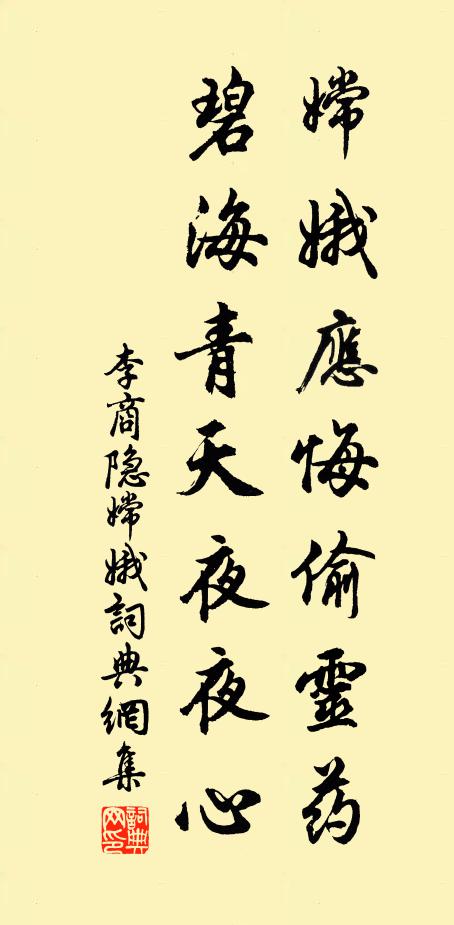 嫦娥應悔偷靈药
碧海青天夜夜心
李商隐嫦娥詞典網集
詞典网印